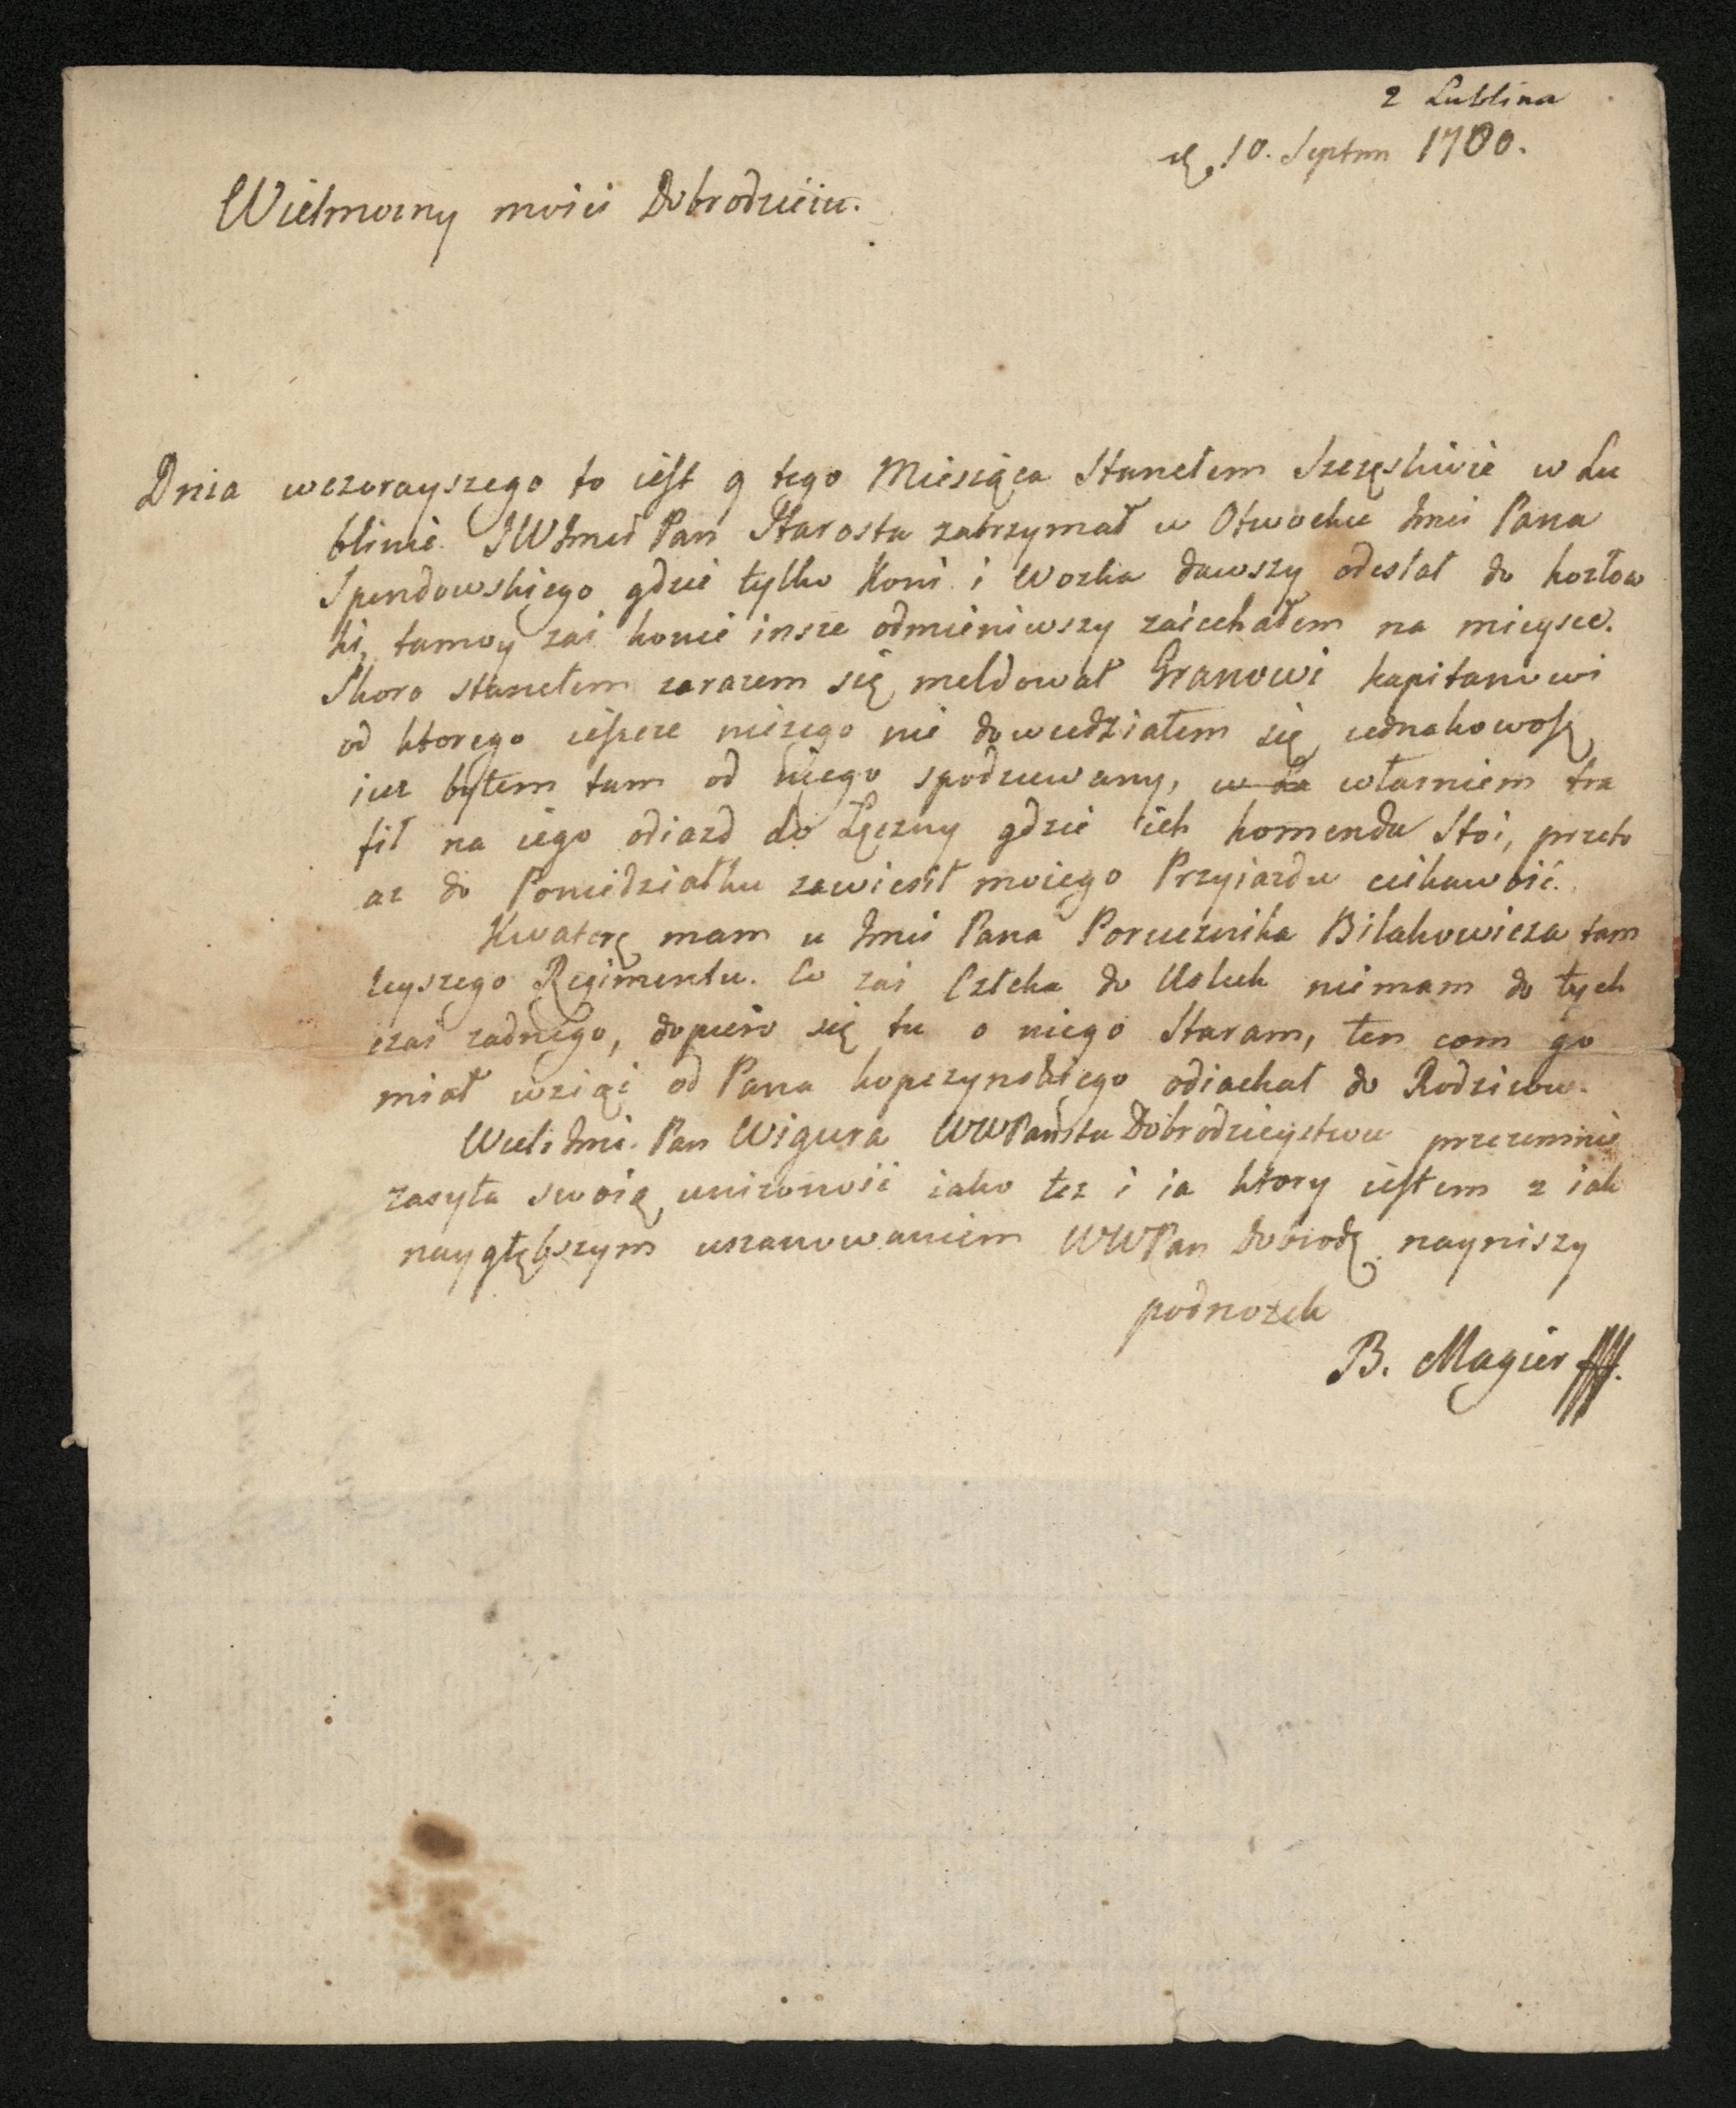 z Lublina
d. 10. Septem 1780.
Wielmozny mości Dobrodzieiu.
Dnia wczorayszego to iest 9 tego Miesiąca Stanełem Szczęsliwie w Lu
blinie. JWJmci Pan Starosta zatrzymał w Otwocku Jmci Pana
Spendowskiego gdzie tylko Koni i Wozka dawszy odesłał do kozłow
ki, tamoy zaś konie insze odmieniwszy zaiechałem na mieysce.
Skoro stanełem zarazem się meldował Granowi kapitanowi
od ktorego ieszcze niczego nie dowiedziałem się iednakowosz
iuz byłem tam od niego spodziewany, własniem tra
fił na iego odiazd do Łęczny gdzie ich komenda Stoi, przeto
az do Poniedziałku zawiesił moiego Przyiazdu ciikawość.
Kwaterę mam u Jmci Pana Porucznika Bilakowicza tam
teyszego Regimentu. Co zaś Człeka do Usług niemam do tych
czas zadnego, dopiero się tu o niego Staram, ten com go
miał wziąć od Pana kopczynskiego odiachał do Rodzicow.
Wiel: Jmci. Pan Wigura WWPaństwu Dobrodzieystwu przezemnie
zasyła swoię unizoność iako tez i ia ktory iestem z iak
naygłębszym uszanowaniem WWPan Dobrodz. nayniszy
podnozek
B. Magier